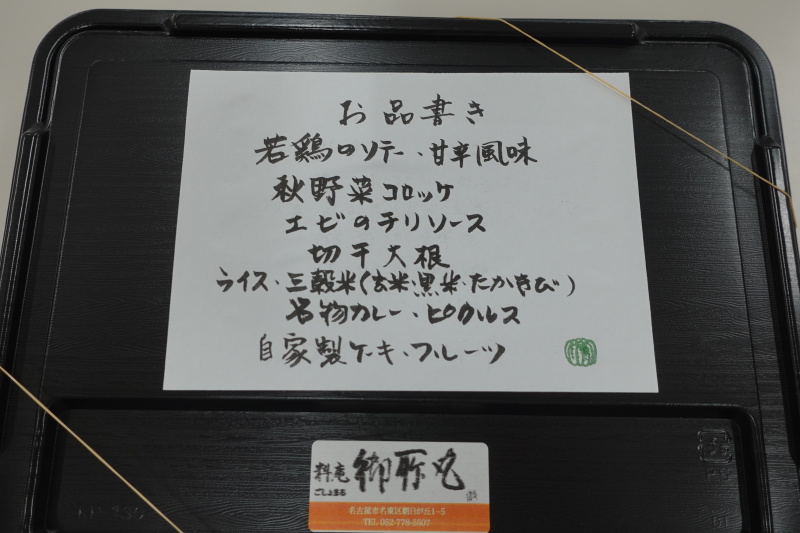 お品書き
若鶏のソテー、甘辛風味
秋野菜コロッケ
エビのチリソース
切干大根
ライス・三穀米(玄米・黒米・たかきび)
名物カレー、ピクルス
自家製ケーキ・フルーツ
料庵
ごしょまる
御所丸
名古屋市名東区朝日が丘1-5
TEL 052-778-5507